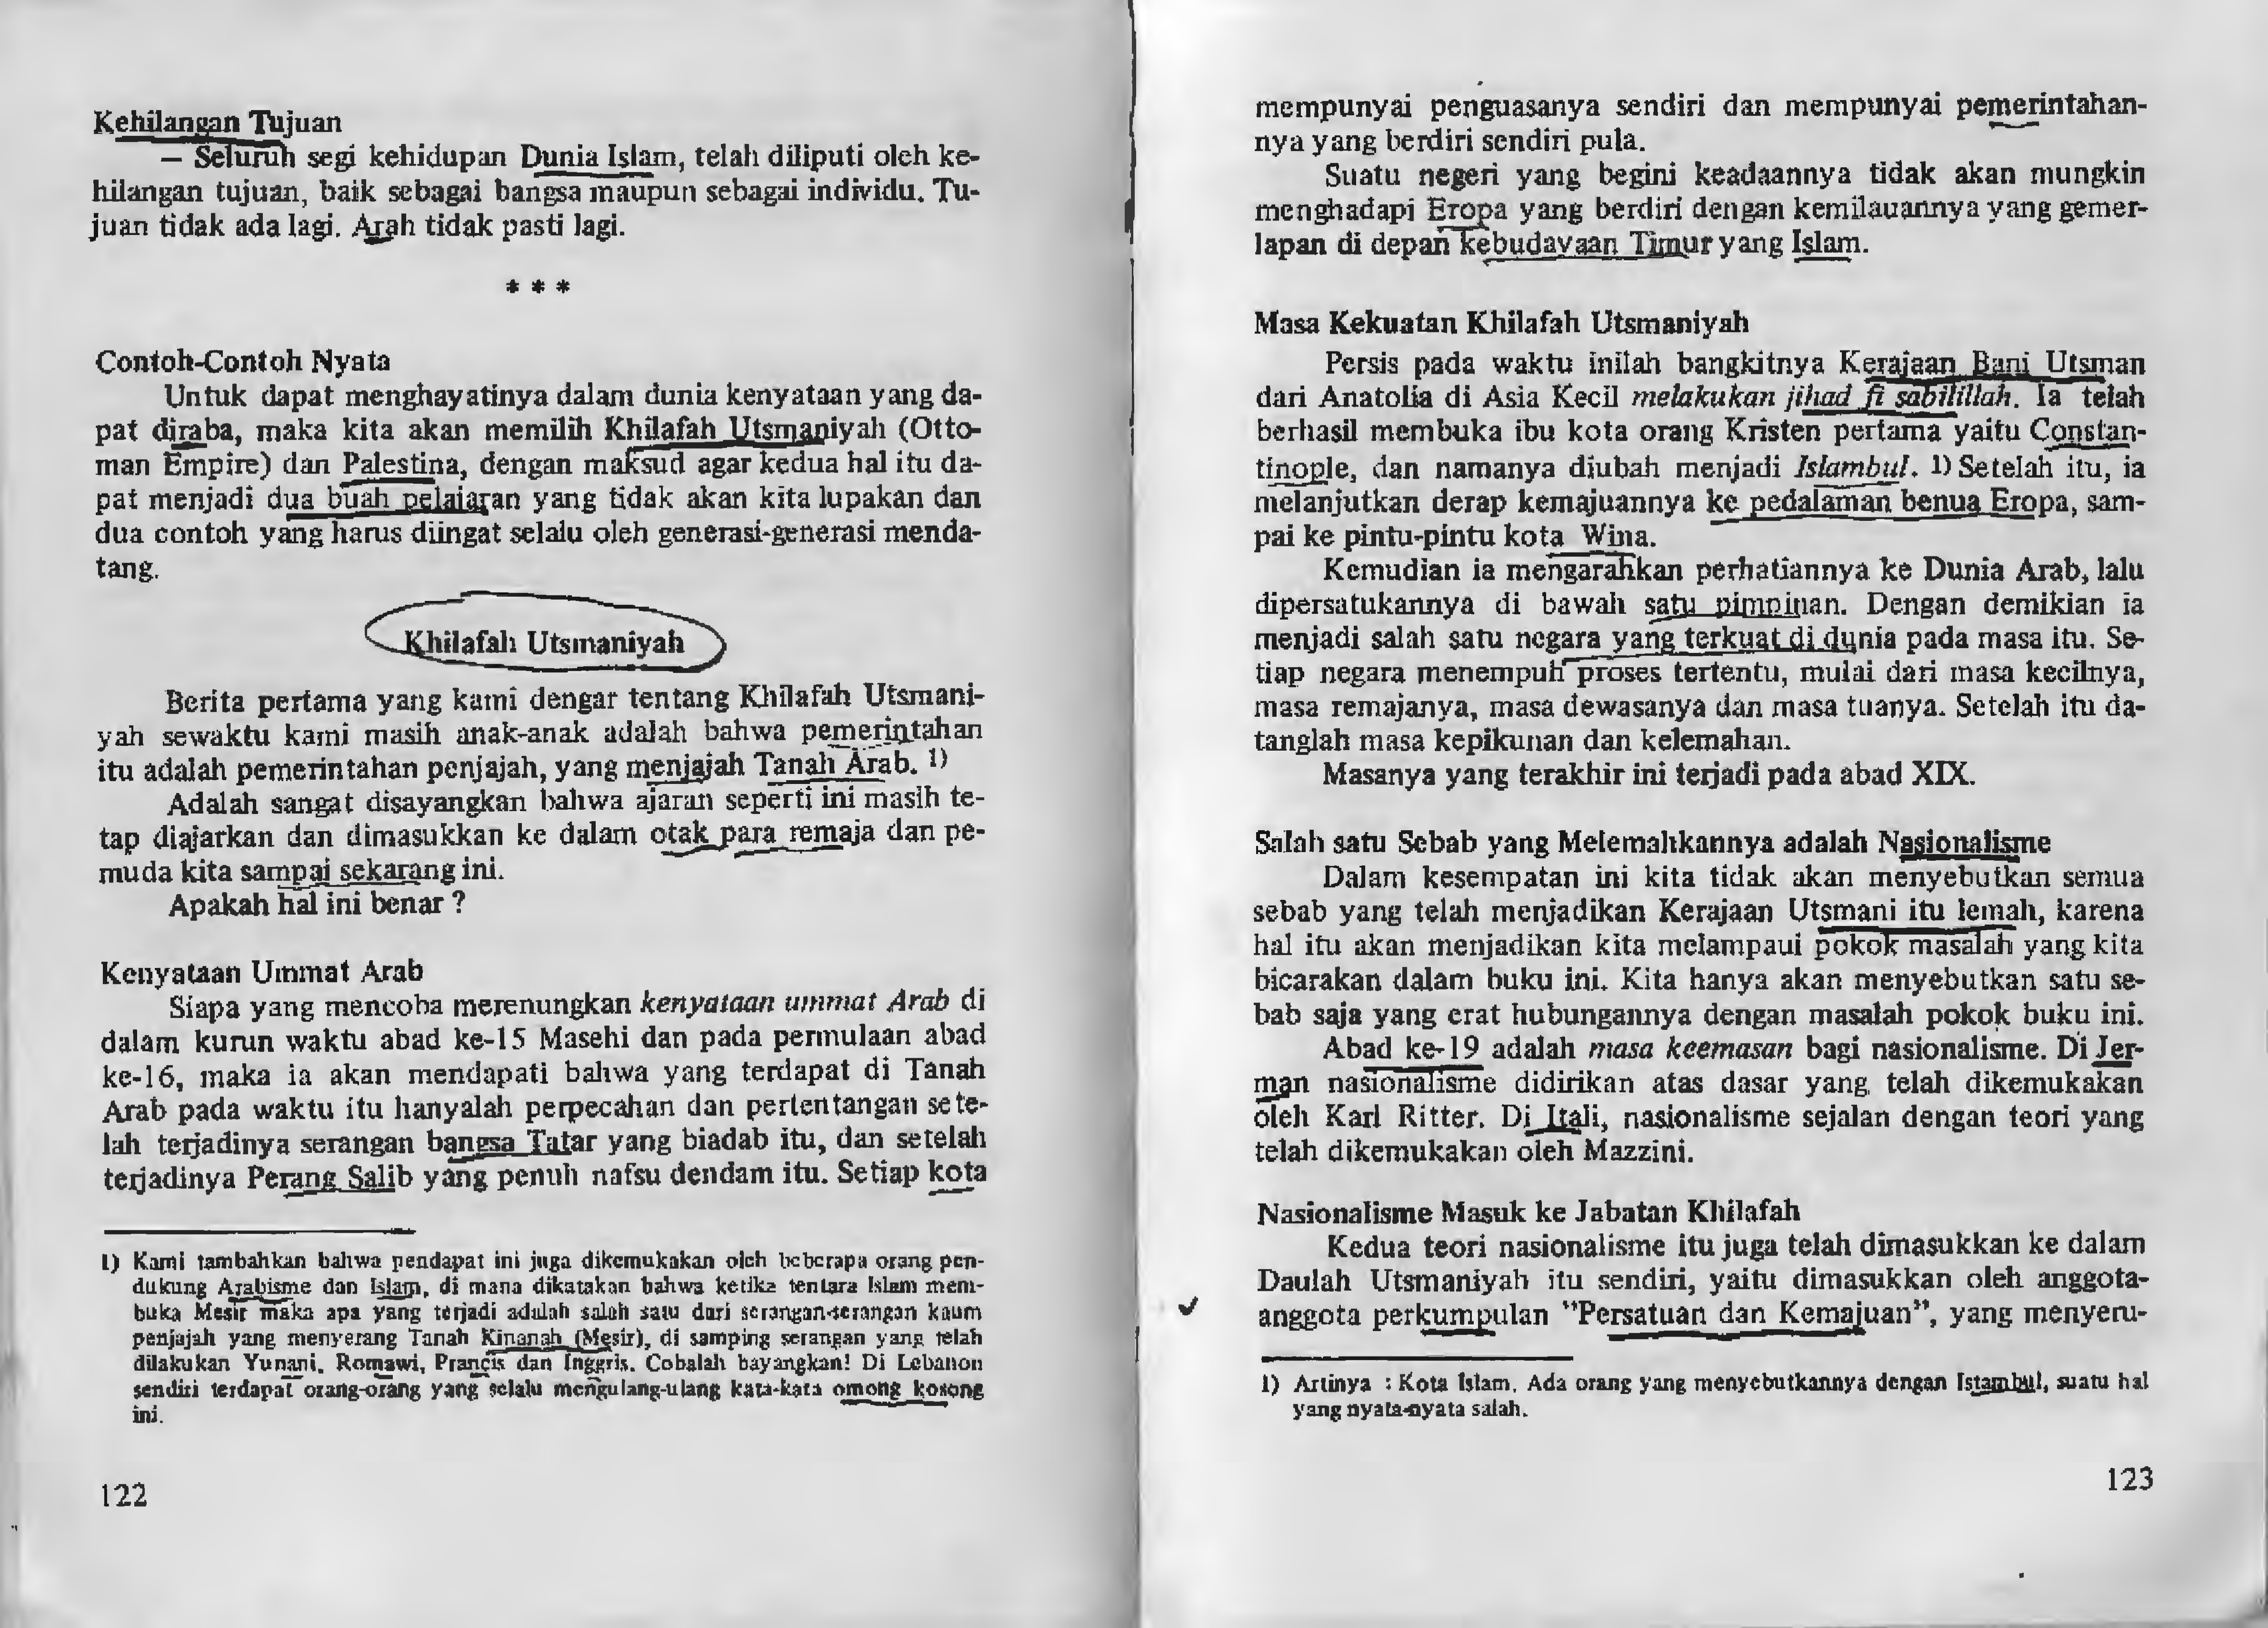 Kehilangan Tujuan
— Seluruh segi kehidupan Dunia Islam, telah diliputi oleh ke-
hilangan tujuan, baik sebagai bangsa maupun sebagai individu. Tu-
juan tidak ada lagi. Arah tidak pasti lagi.
* * *
Contoh-Contoh Nyata
Untuk dapat menghayatinya dalam dunia kenyataan yang da-
pat diraba, maka kita akan memilih Khilafah Utsmaniyah (Otto-
man Empire) dan Palestina, dengan maksud agar kedua hal itu da-
pat menjadi dua buah pelajaran yang tidak akan kita lupakan dan
dua contoh yang harus diingat selalu oleh generasi-generasi menda-
tang.
Khilafah Utsmaniyah
Berita pertama yang kami dengar tentang Khilafah Utsmani-
yah sewaktu kami masih anak-anak adalah bahwa pemerintahan
itu adalah pemerintahan penjajah, yang menjajah Tanah Arab. 1)
Adalah sangat disayangkan bahwa ajaran seperti ini masih te-
tap diajarkan dan dimasukkan ke dalam otak para remaja dan pe-
muda kita sampai sekarang ini.
Apakah hal ini benar ?
Kenyataan Ummat Arab
Siapa yang mencoba merenungkan kenyataan ummat Arab di
dalam kurun waktu abad ke-15 Masehi dan pada permulaan abad
ke-16, maka ia akan mendapati bahwa yang terdapat di Tanah
Arab pada waktu itu hanyalah perpecahan dan pertentangan sete-
lah terjadinya serangan bangsa Tatar yang biadab itu, dan setelah
terjadinya Perang Salib yang penuh nafsu dendam itu. Setiap kota
1) Kami tambahkan bahwa pendapat ini juga dikemukakan oleh beberapa orang pen-
dukung Arabisme dan Islam, di mana dikatakan bahwa ketika tentara Islam mem-
buka Mesir maka apa yang terjadi adalah salah satu dari serangan-serangan kaum
penjajah yang menyerang Tanah Kinanah (Mesir), di samping serangan yang telah
dilakukan Yunani, Romawi, Prancis dan Inggris. Cobalah bayangkan! Di Lebanon
sendiri terdapat orang-orang yang selalu mengulang-ulang kata-kata omong kosong
ini.
122
mempunyai penguasanya sendiri dan mempunyai pemerintahan-
nya yang berdiri sendiri pula.
Suatu negeri yang begini keadaannya tidak akan mungkin
menghadapi Eropa yang berdiri dengan kemilauannya yang gemer-
lapan di depan kebudayaan Timur yang Islam.
Masa Kekuatan Khilafah Utsmaniyah
Persis pada waktu inilah bangkitnya Kerajaan Bani Utsman
dari Anatolia di Asia Kecil melakukan jihad fi sabilillah. Ia telah
berhasil membuka ibu kota orang Kristen pertama yaitu Constan-
tinople, dan namanya diubah menjadi Islambul. 1) Setelah itu, ia
melanjutkan derap kemajuannya ke pedalaman benua Eropa, sam-
pai ke pintu-pintu kota Wina.
Kemudian ia mengarahkan perhatiannya ke Dunia Arab, lalu
dipersatukannya di bawah satu pimpinan. Dengan demikian ia
menjadi salah satu negara yang terkuat di dunia pada masa itu. Se-
tiap negara menempuh proses tertentu, mulai dari masa kecilnya,
masa remajanya, masa dewasanya dan masa tuanya. Setelah itu da-
tanglah masa kepikunan dan kelemahan.
Masanya yang terakhir ini terjadi pada abad XIX.
Salah satu Sebab yang Melemahkannya adalah Nasionalisme
Dalam kesempatan ini kita tidak akan menyebutkan semua
sebab yang telah menjadikan Kerajaan Utsmani itu lemah, karena
hal itu akan menjadikan kita melampaui pokok masalah yang kita
bicarakan dalam buku ini. Kita hanya akan menyebutkan satu se-
bab saja yang erat hubungannya dengan masalah pokok buku ini.
Abad ke-19 adalah masa keemasan bagi nasionalisme. Di Jer-
man nasionalisme didirikan atas dasar yang telah dikemukakan
oleh Karl Ritter. Di Itali, nasionalisme sejalan dengan teori yang
telah dikemukakan oleh Mazzini.
Nasionalisme Masuk ke Jabatan Khilafah
Kedua teori nasionalisme itu juga telah dimasukkan ke dalam
Daulah Utsmaniyah itu sendiri, yaitu dimasukkan oleh anggota-
anggota perkumpulan "Persatuan dan Kemajuan", yang menyeru-
1) Artinya : Kota Islam. Ada orang yang menyebutkannya dengan Istambul, suatu hal
yang nyata-nyata salah.
123